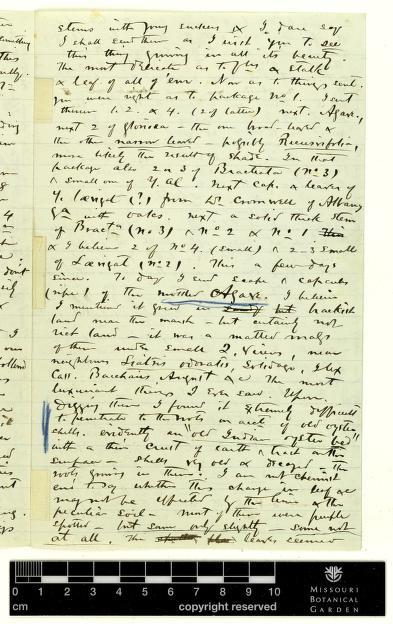 stems with young suckers & I dare say
I shall send them as I wish you to see
this thing growing in all its beauty.
The most delicate as to fls & stalk
& leaf of all of em. Now as to things sent.
you were right as to package No 1. I sent
therein 1. 2. & 4. (2 of latter) next. Agave.
next 2 of gloriosa - the one broad leav'd &
the other narrow leav'd - possibly Recurvifolia,
more likely the result of shade. In that
package also 2 or 3 of Bracteata (No 3)
& small one of Y. Al. Next Cap. & leaves of
Y. (?) from Dr. Cromwell of Albany
Ga with oates. next a solid thick stem
of Bract (No 3) & No 2 & No 1
& I believe 2 of No 4. (small) & 2-3 small
of (No 2). This a few days
since. To day I send scape & capsules
(ripe) of the mottled Agave. I believe
I mentioned it grew in brackish
land near the marsh - but certainly not
rich land - it was a matted mass
of them under small Q. Virens, near
neighbors Liatris odoratis, Solidago, Ilex
Cass. Baccharis August & The most
luxuriant things I ever saw. Upon
digging them I found it extremely difficult
to penetrate to the roots on acct of old oyster
shells. evidently an "old Indian oyster bed"
with a thin crust of earth & trash on the
surface - shells very old & decayed - the
roots growing in them. I am not chemist
eno' to say whether this change in leaf &c
may not be effected by the lime & this
peculiar soil - most of them were purple
spotted - but some only slightly - some not
at all. The leaves seemed
0 1 2 3 4 5 6 7 8 9 10
cm copyright reserved
MISSOURI
BOTANICAL
GARDEN